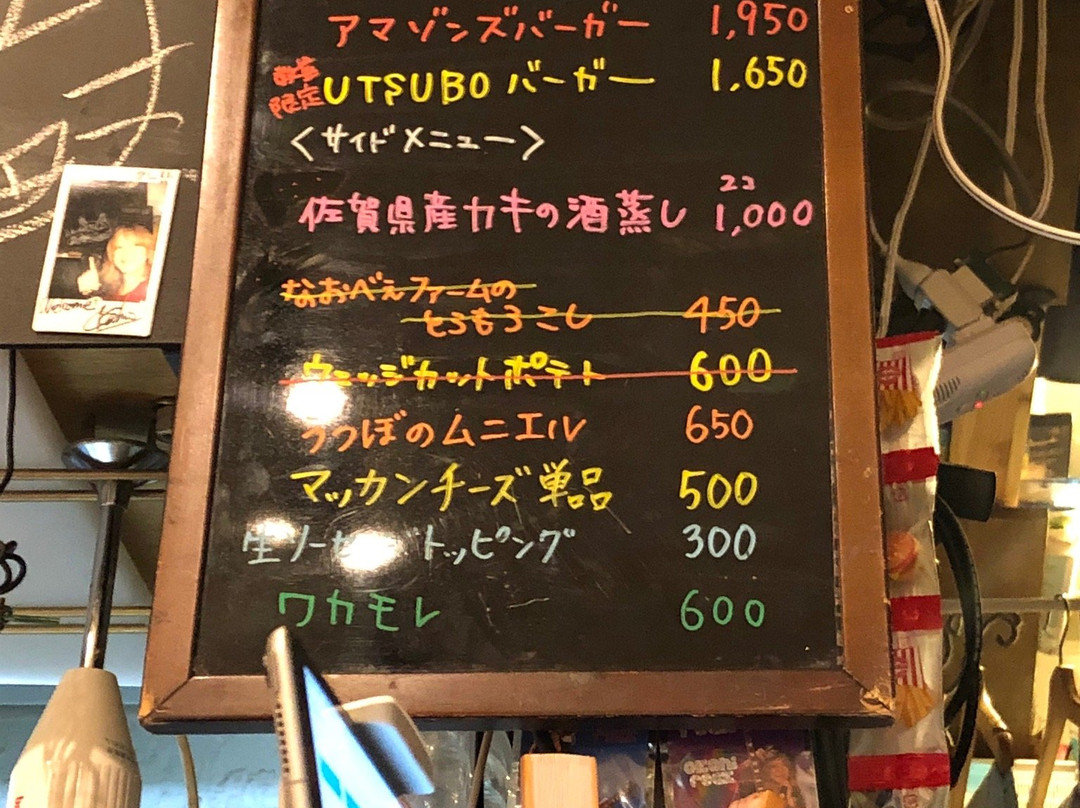 アマゾンズバーガー 1,950
数量限定 UTSUBO バーガー 1,650
<サイドメニュー>
佐賀県産カキの酒蒸し 2コ 1,000
なおべぇファームの
とうもろこし 450
ウェッジカットポテト 600
うつぼのムニエル 650
マッカンチーズ単品 500
生ソーセージトッピング 300
ワカモレ 600
Welcome